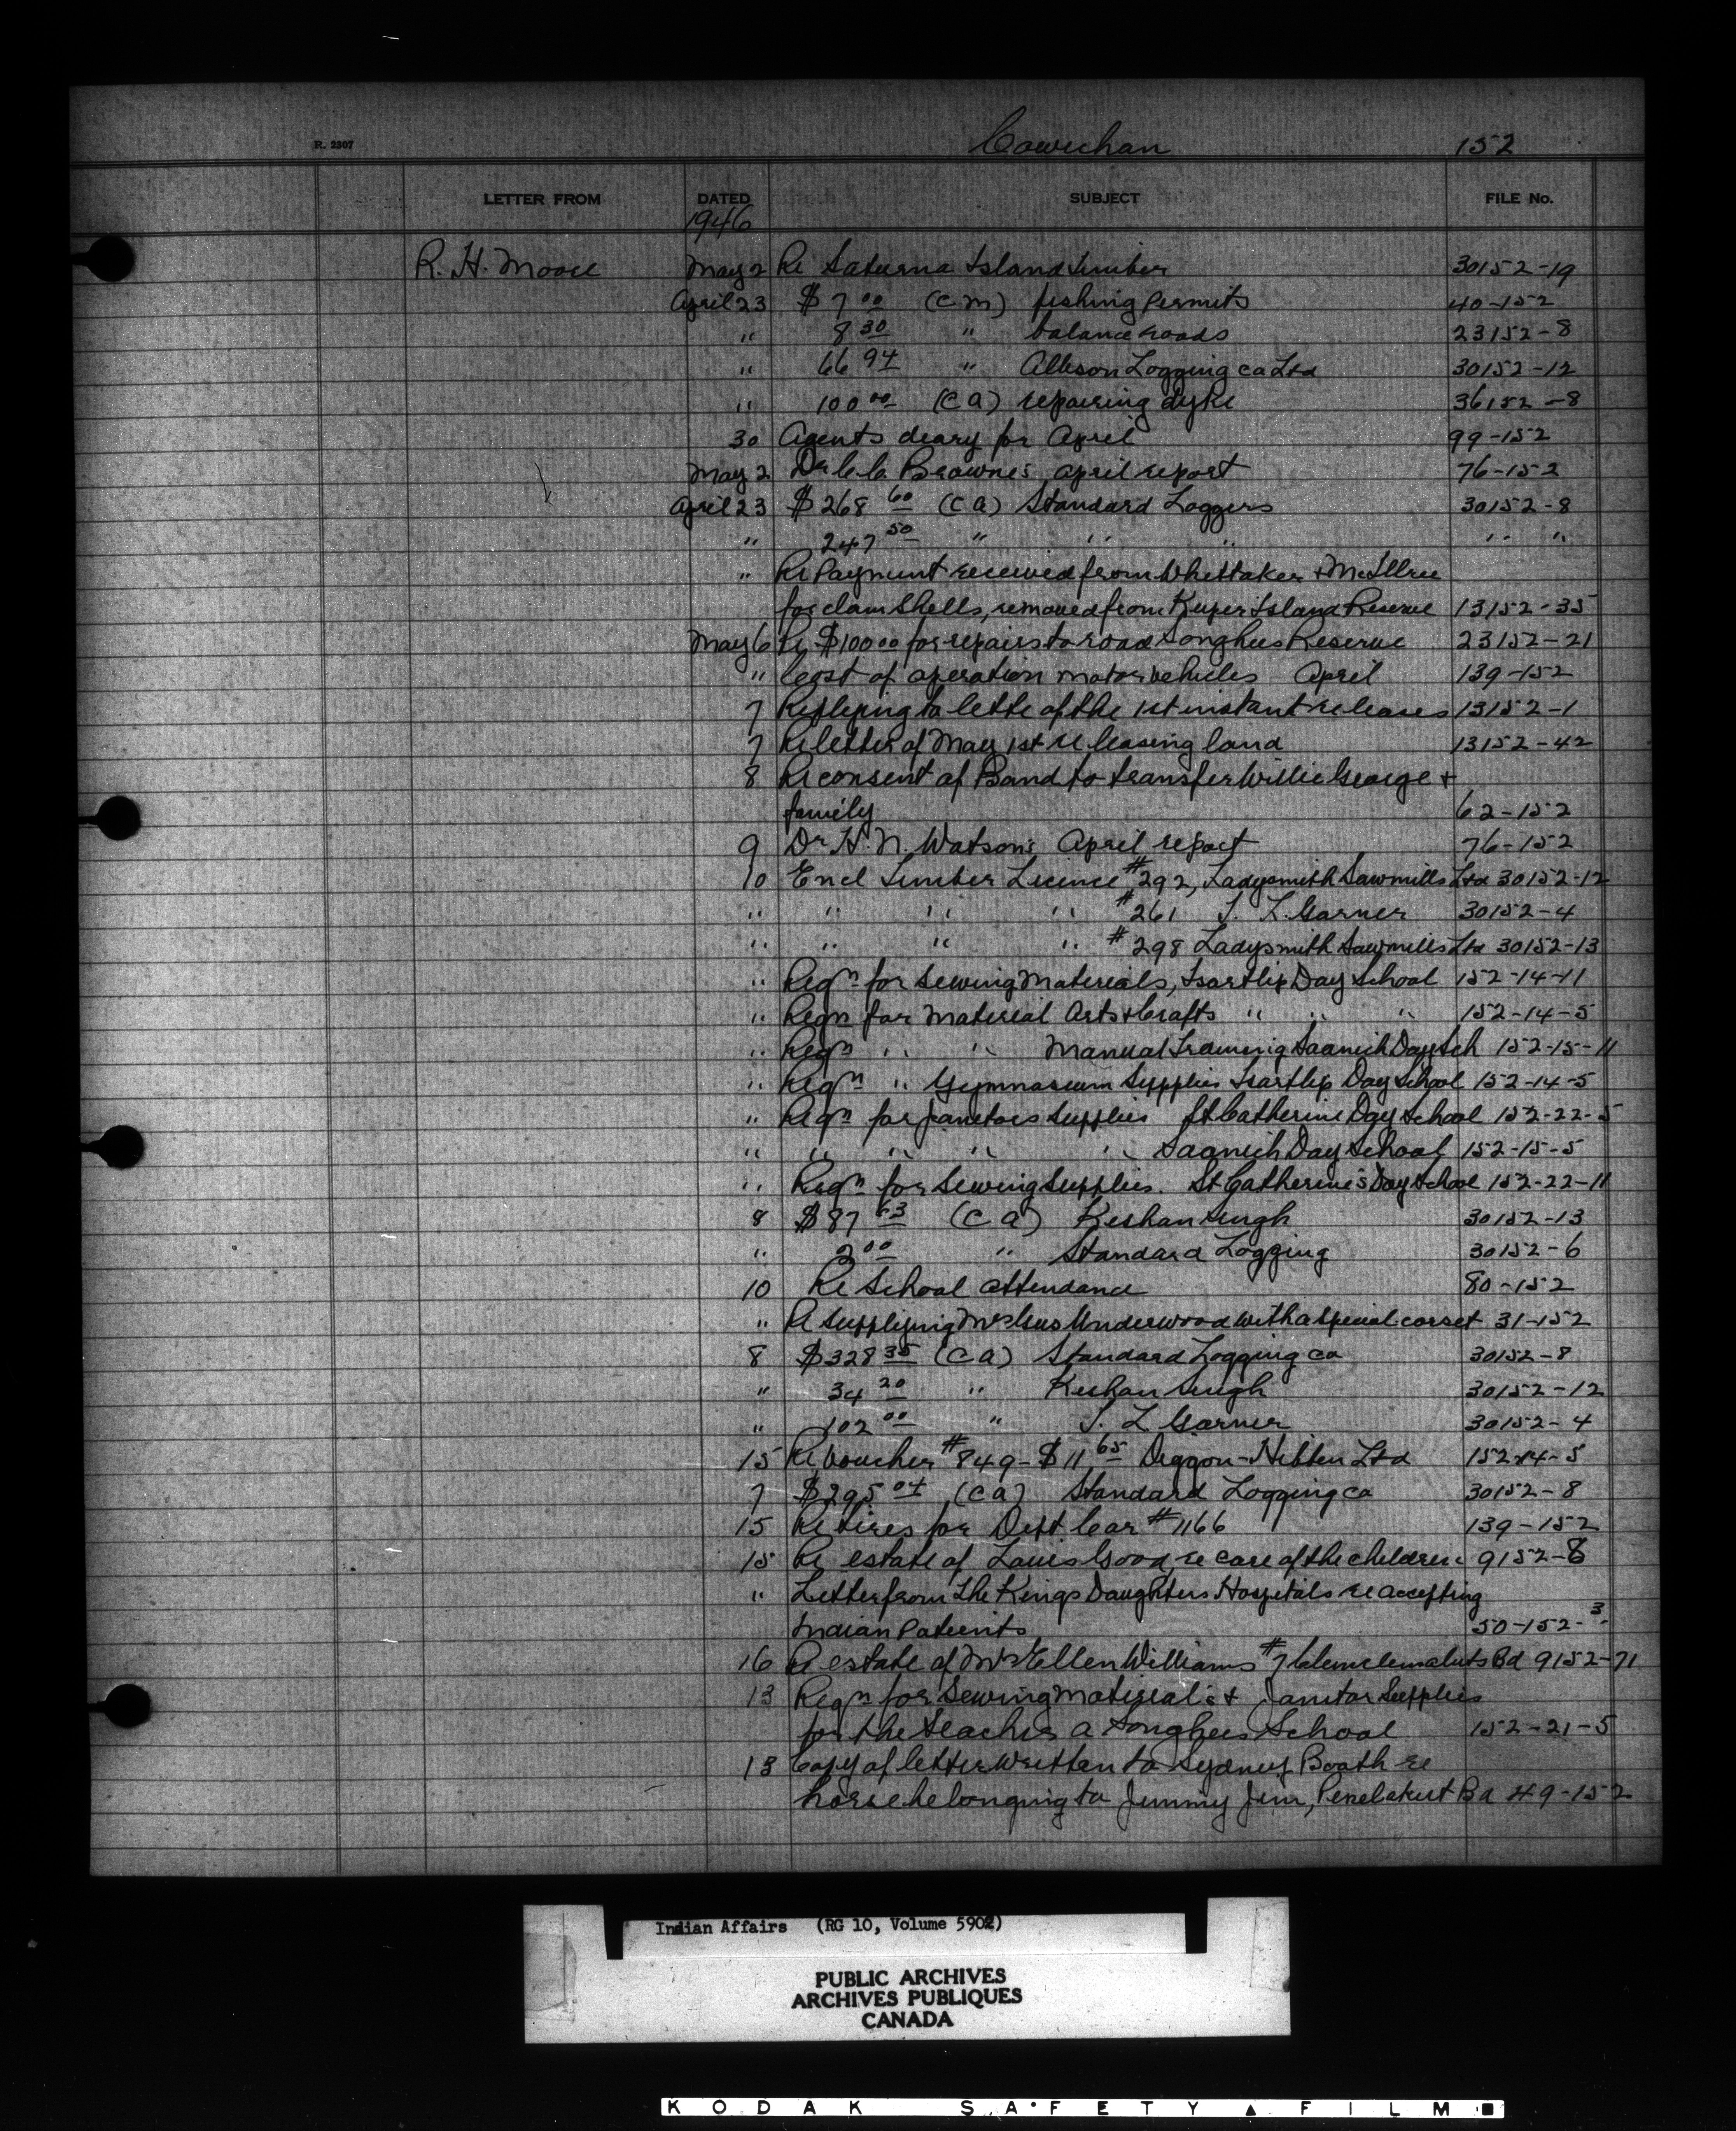 R. 2307
Cowichan 152
LETTER FROM DATED SUBJECT FILE No.
1946
R. H. Moore May 2 Re Saturna Island timber 30152-19
April 23 $7 00 (C M) fishing permits 40-152
" 8 30 " balance roads 23152-8
" 66 94 " Allison Logging Co Ltd 30152-12
" 100 00 (C A) repairing dyke 36152-8
30 Agents diary for April 99-152
May 2 Dr C. C. Browne's April report 76-152
April 23 $268 60 (C A) Standard Loggers 30152-8
" 247 50 " " " " "
" Re Payment received from Whittaker + McIlree
for clam shells, removed from Kuper Island Reserve 13152-35
May 6 Re $100 00 for repairs to road Songhees Reserve 23152-21
" Cost of operation motor vehicles April 139-152
7 Replying to lette of the 1st instant re leases 13152-1
7 Re letter of May 1st re leasing land 13152-42
8 Re consent of Band to transfer Willie George +
family 62-152
9 Dr H. N. Watson's April report 76-152
10 Encl Timber Licence #292, Ladysmith Sawmills Ltd 30152-12
" " " " #261 T. L. Garner 30152-4
" " " " #298 Ladysmith Sawmills Ltd 30152-13
" Reqn for sewing materials, Tsartlip Day School 152-14-11
" Reqn for material Arts + Crafts " " " 152-14-5
" Reqn " " Manual Training Saanich Day Sch 152-15-11
" Reqn " Gymnasium Supplies Tsartlip Day School 152-14-5
" Reqn for janitors supplies St Catherine Day School 152-22-5
" " " " " Saanich Day School 152-15-5
" Reqn for sewing supplies. St Catherine's Day School 152-22-11
8 $87 63 (C A) Keshan Singh 30152-13
" 2 00 " Standard Logging 30152-6
10 Re School attendance 80-152
" Re supplying Mrs Gus Underwood with a special corset 31-152
8 $328 35 (C A) Standard Logging Co 30152-8
" 34 20 " Keshan Singh 30152-12
" 102 00 " T. L Garner 30152-4
15 Re voucher #849 - $11 65 Diggon-Hibben Ltd 152-14-5
7 $295 04 (C A) Standard Logging Co 30152-8
15 Re tires for Dept Car #1166 139-152
15 Re estate of Louis Good, re care of the children 9152-8
" Letter from The Kings Daughters Hospitals re accepting
Indian Patients 50-152-3
16 Re estate of Mrs Ellen Williams #7 Clemclemaluts Bd 9152-71
13 Reqn for Sewing material's + Janitor Supplies
for the teacher a Songhees School 152-21-5
13 Copy of letter written to Sydney Booth re
horse belonging to Jimmy Jim, Penelakut Bd 49-152
Indian Affairs (RG 10, Volume 5902)
PUBLIC ARCHIVES
ARCHIVES PUBLIQUES
CANADA
KODAK SAFETY FILM